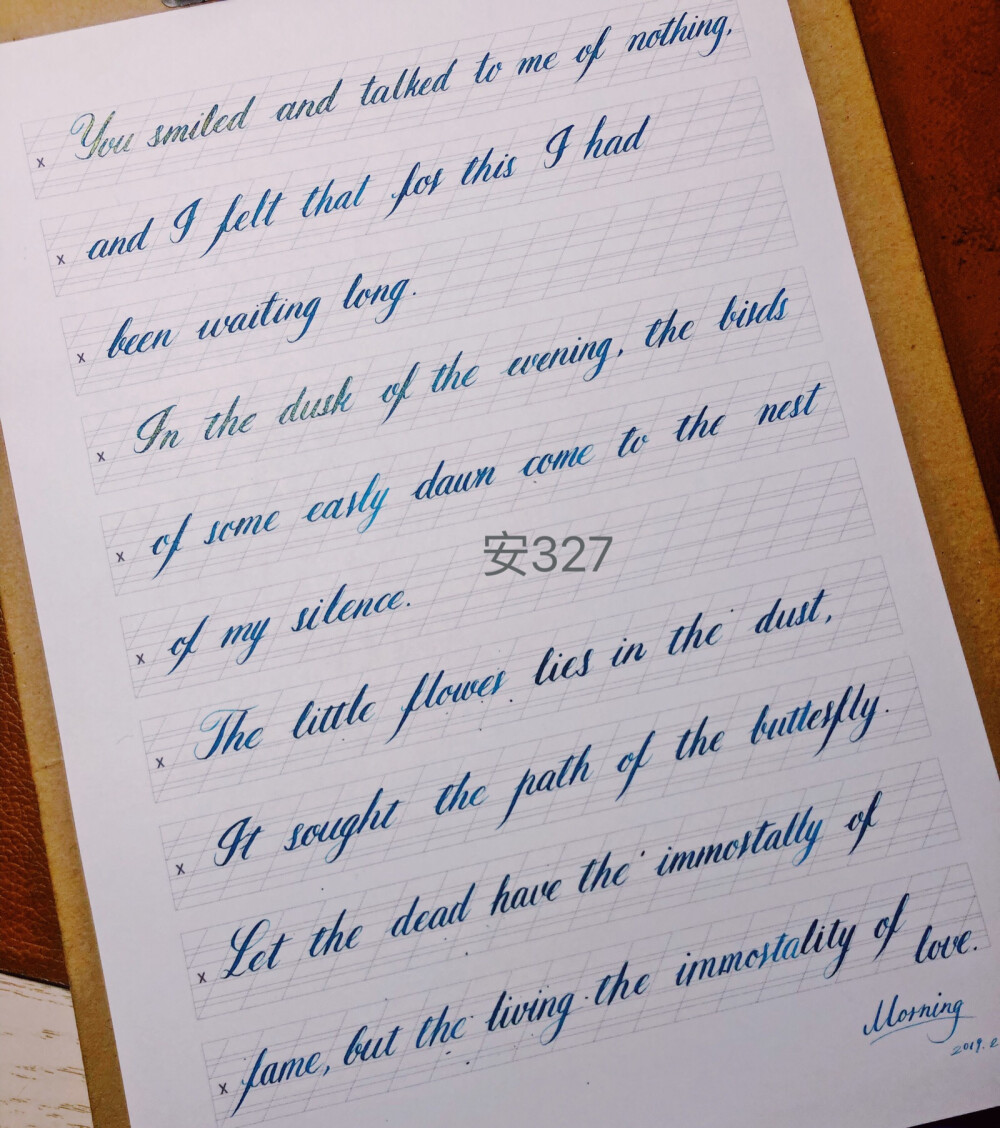 x You smiled and talked to me of nothing,
x and I felt that for this I had
x been waiting long.
x In the dusk of the evening, the birds
x of some early dawn come to the nest
安327
x of my silence.
x The little flower lies in the dust,
x It sought the path of the butterfly.
x Let the dead have the immortally of
x fame, but the living the immortality of love.
Morning
2019.2